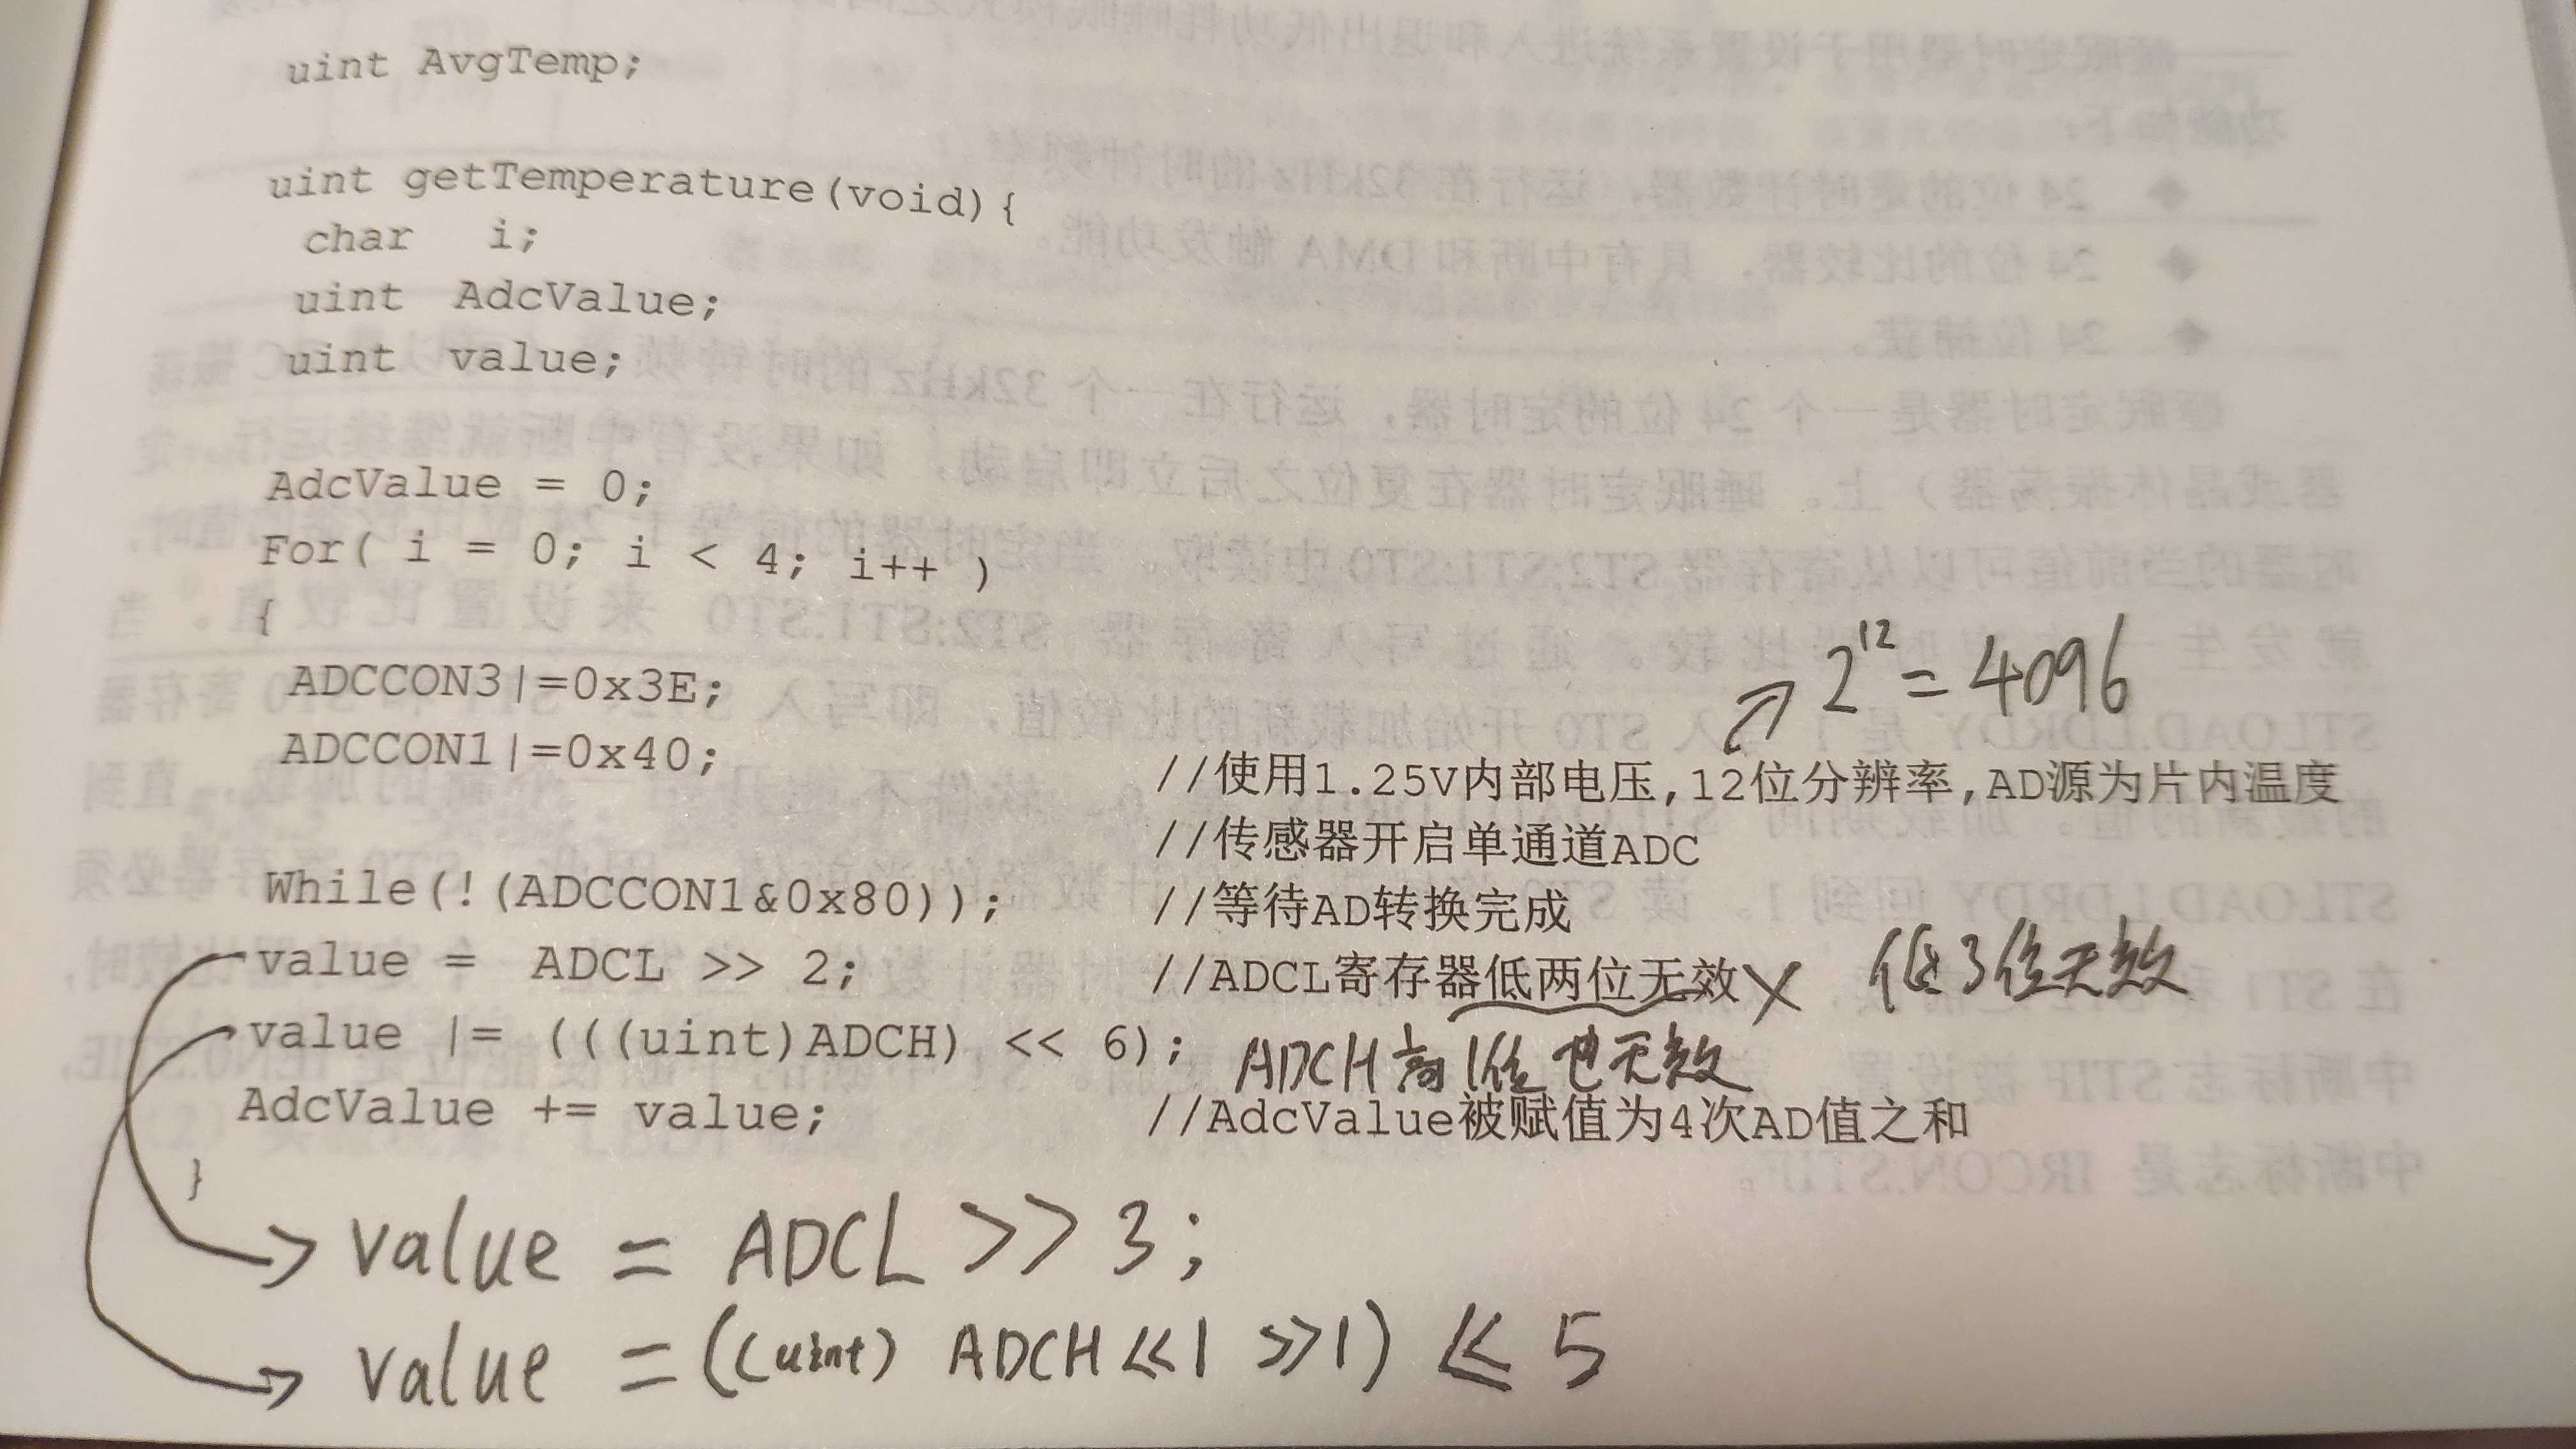 uint AvgTemp;
uint getTemperature(void){
char i;
uint AdcValue;
uint value;
AdcValue = 0;
For( i = 0; i < 4; i++ )
{
ADCCON3|=0x3E;
2^12 = 4096
ADCCON1|=0x40;
//使用1.25V内部电压,12位分辨率,AD源为片内温度
//传感器开启单通道ADC
While(!(ADCCON1&0x80)); //等待AD转换完成
value = ADCL >> 2; //ADCL寄存器低两位无效 × 低3位无效
value |= (((uint)ADCH) << 6); ADCH高1位也无效
AdcValue += value; //AdcValue被赋值为4次AD值之和
}
value = ADCL >> 3;
value = ((uint) ADCH << 1 >> 1) << 5